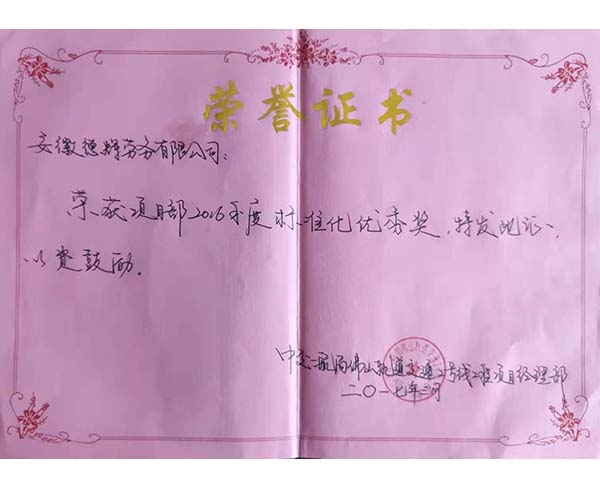 荣誉证书
安徽德辉劳务有限公司：
荣获项目部2016年度标准化优秀奖，特发此证，
以资鼓励。
中交一航局佛山轨道交通2号线工程项目经理部
二〇一七年二月